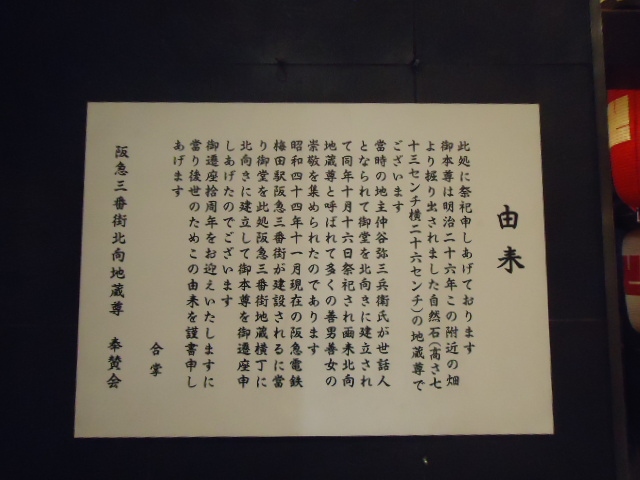 由来
此处に祭祀申しあげております
御本尊は明治二十六年この附近の畑
より掘り出されました自然石(高さ七
十三センチ横二十六センチ)の地蔵尊で
ございます
當時の地主仲谷弥三兵衛氏が世話人
となられて御堂を北向きに建立され
て同年十月十六日祭祀され画来北向
地蔵尊と呼ばれて多くの善男善女の
崇敬を集められたのであります
昭和四十四年十一月現在の阪急電鉄
梅田駅阪急三番街が建設されるに當
り御堂を此処阪急三番街地蔵横丁に
北向きに建立して御本尊を御遷座申
しあげたのでございます
御遷座拾周年をお迎えいたしますに
當り後世のためこの由来を謹書申し
あげます
合掌
阪急三番街北向地蔵尊 奉賛会